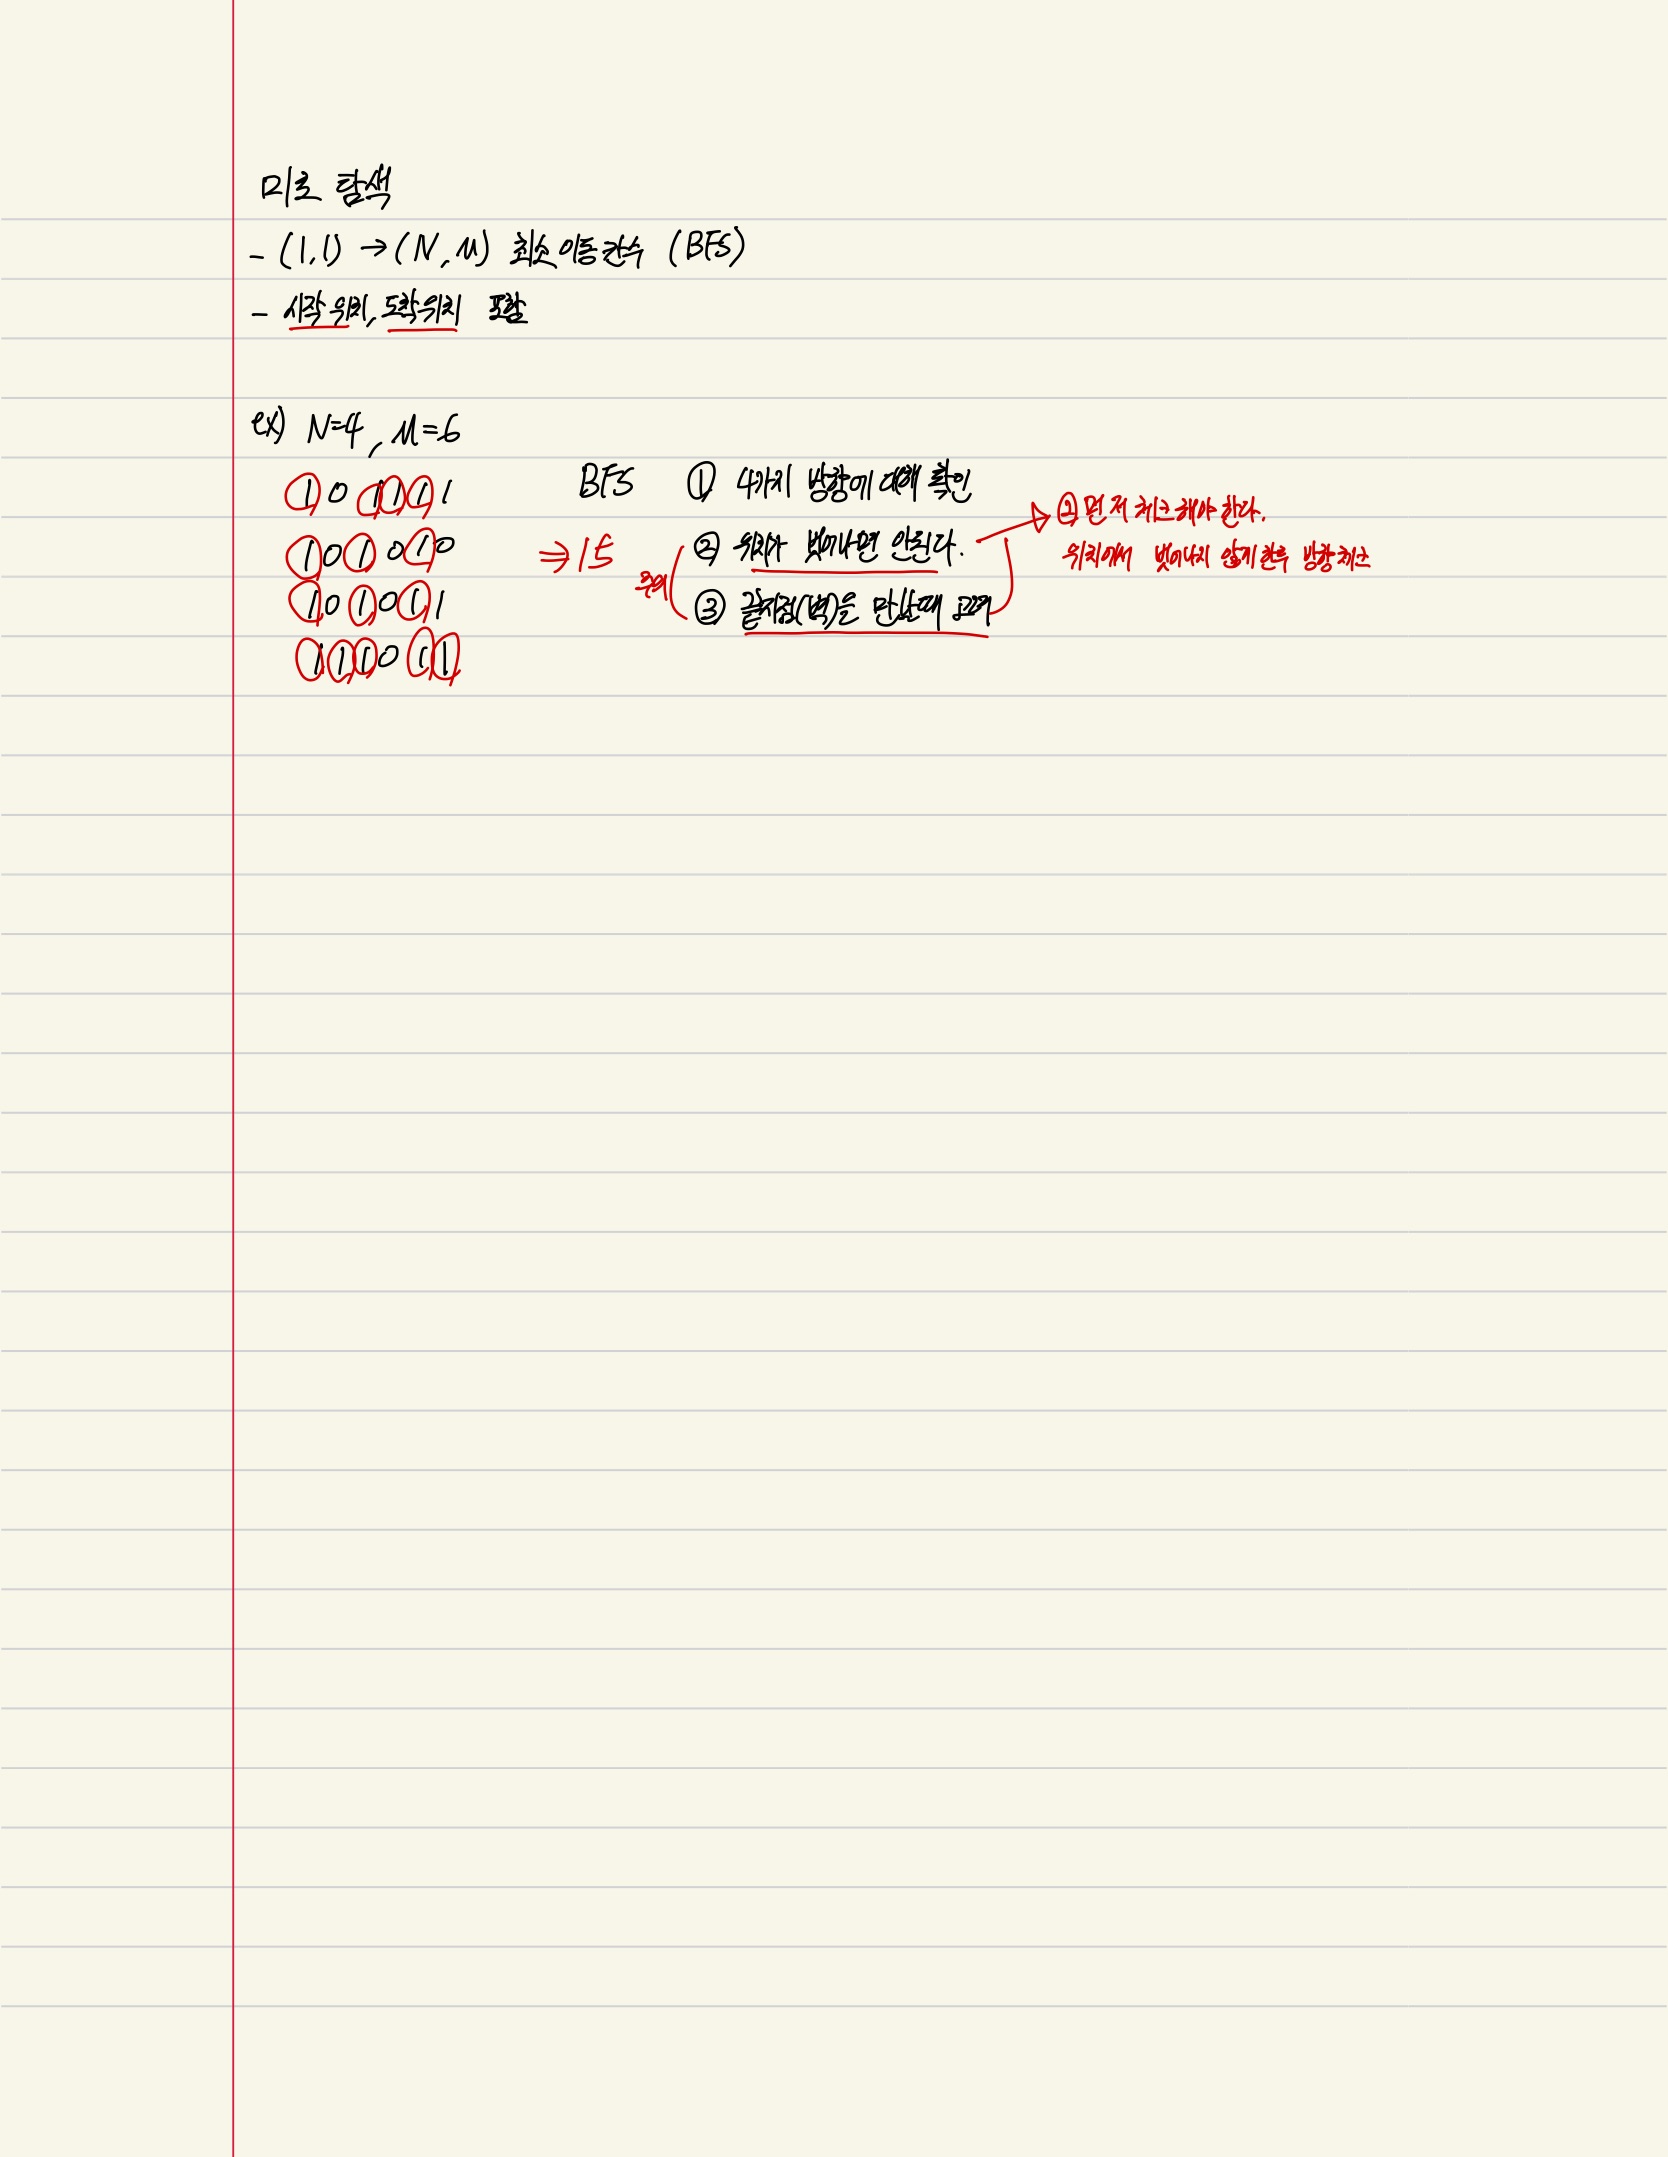 미로 탐색
- (1,1) → (N, M) 최소 이동 칸수 (BFS)
- 시작 위치, 도착위치 포함
ex) N=4, M=6
1 0 1 1 1 1
1 0 1 0 1 0
1 0 1 0 1 1
1 1 1 0 1 1
⇒ 15
BFS ① 4가지 방향에 대해 확인
② 위치가 벗어나면 안된다.
주의
③ 끝지점(벽)을 만났때 고려
② 먼저 체크해야 한다.
위치에서 벗어나지 않게 한후 방향 체크